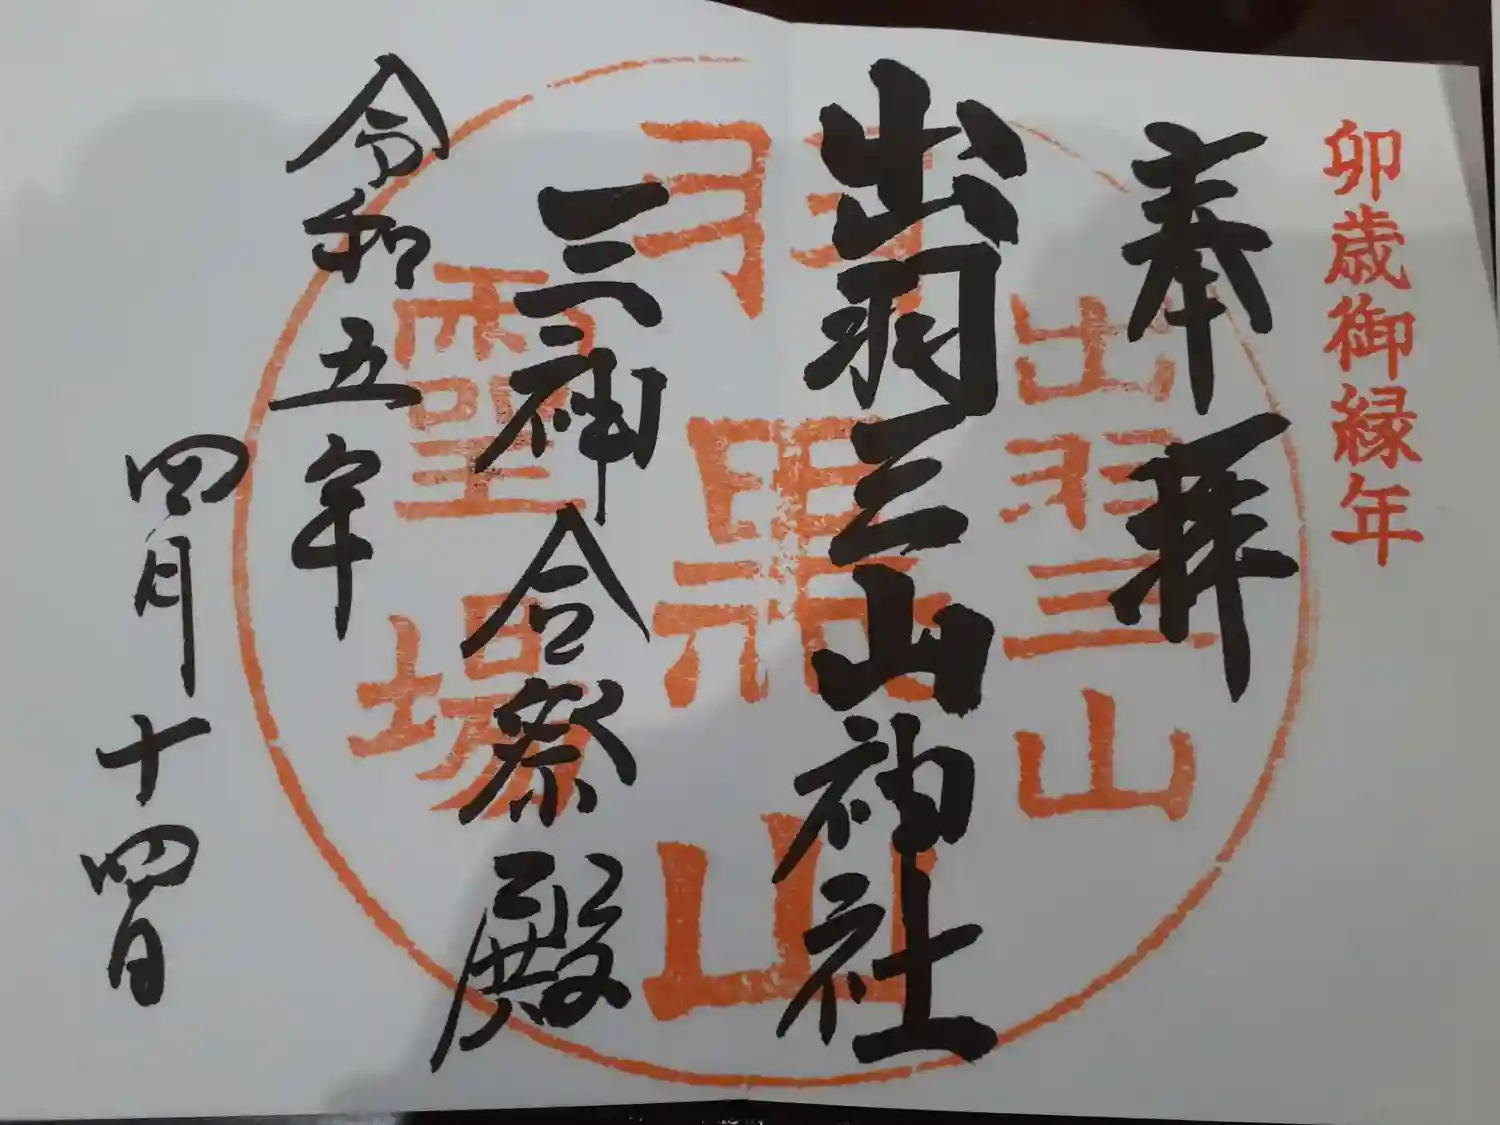 卯歳御縁年
奉拝
出羽三山神社
三神合祭殿
令和五年
四月十四日
出羽三山
羽黒山
霊場